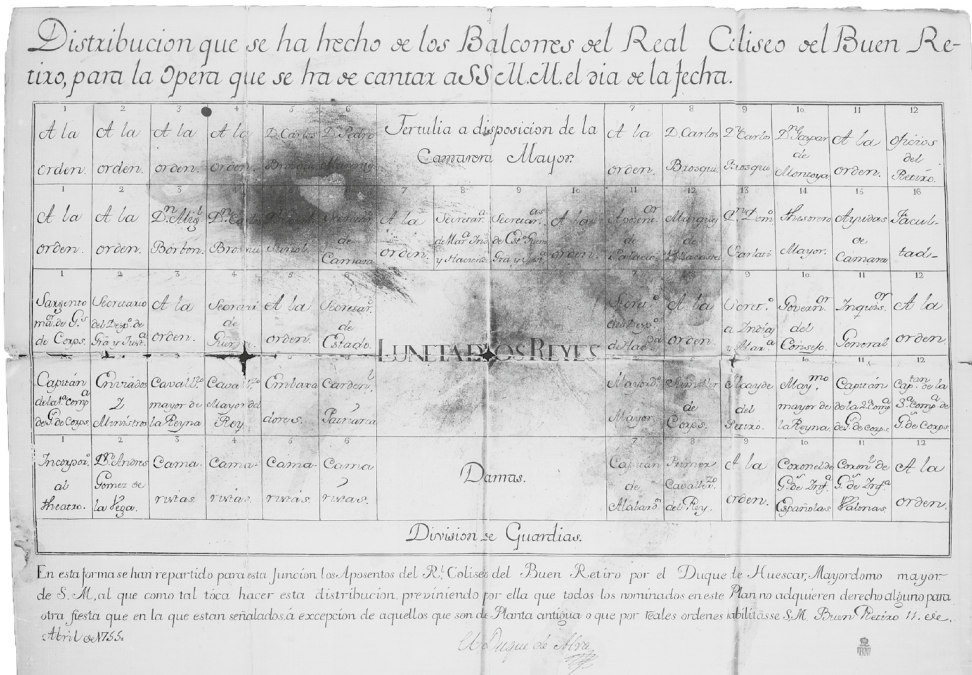 Distribucion que se ha hecho de los Balcones del Real Coliseo del Buen Re-
tiro, para la Opera que se ha de cantar a SS.M.M. el dia de la fecha.
1 2 3 4 5 6 7 8 9 10 11 12
A la orden.
A la orden.
A la orden.
A la orden.
D. Carlos
D. Pedro
Tertulia a disposicion de la Camarera Mayor.
A la orden.
D. Carlos Brosqui.
Dn. Carlos Brosqui
Dn. Gaspar de Montoya
A la orden.
Oficios del Retiro.
1 2 3 4 5 6 7 8 9 10 11 12 13 14 15 16
A la orden.
A la orden.
Dn. Migl. Borbon.
Dn. Carlos Brosqui
Secretar. de Camara
A la orden.
Secretar.a de Mar.a Ind. y Hacienda
Secretar.as de Est. Guerra Gra. y Just.
A la orden
Marques
Dn. Dom.o
Thesorero Mayor.
Ayudas de Camara
Facul tad-
1 2 3 4 5 6 7 8 9 10 11 12
Sargento mor. de Gs. de Corps.
Secretario del Desp.o de Gra. y Just.a
A la orden.
Secretari de Guerra
A la orden.
Secretar.o de Estado.
Secret.o de Hacda.
A la orden
Secret.o a Indias y Mar.a
Governor. del Consejo
Inquisor. General
A la orden.
LUNETA DE LOS REYES
Capitan de la 1a. Comp.a de Gs. de Corps
Enviados y Ministro
Cavall.zo mayor de la Reyna
Cavall.zo Mayor del Rey.
Embaxa dores.
Carden.l y Patriarca
Mayordo. Mayor.
Sumiller de Corps.
Alcayde del Retiro.
May.mo mayor de la Reyna.
Capitan de la 2a. Comp.a de Gs. de Corps.
Cap.tan de la 3a. Comp.a de Gs. de Corps
1 2 3 4 5 6 7 8 9 10 11 12
Incorpor.o al theatro.
Dn. Andres Gomez de la Vega.
Cama- ristas.
Cama- ristas.
Cama- ristas.
Cama ristas.
Damas.
Capitan de Alabar.s
Primer Cavaller.zo del Rey.
A la orden.
Coronel de Gs. de Inf.a Españolas
Coron.l de Gs. de Inf.a Valonas
A la orden.
Division de Guardias.
En esta forma se han repartido para esta funcion los Aposentos del Rl. Coliseo del Buen Retiro por el Duque de Huescar, Mayordomo mayor
de S.M, al que como tal toca hacer esta distribucion, previniendo por ella que todos los nominados en este Plan no adquieren derecho alguno para
otra fiesta en la que estan señalados, á excepcion de aquellos que son de Planta antigua o que por reales ordenes abilitasse S.M. Buen Retiro 11. de
Abril de 1755.
El Duque de Alva